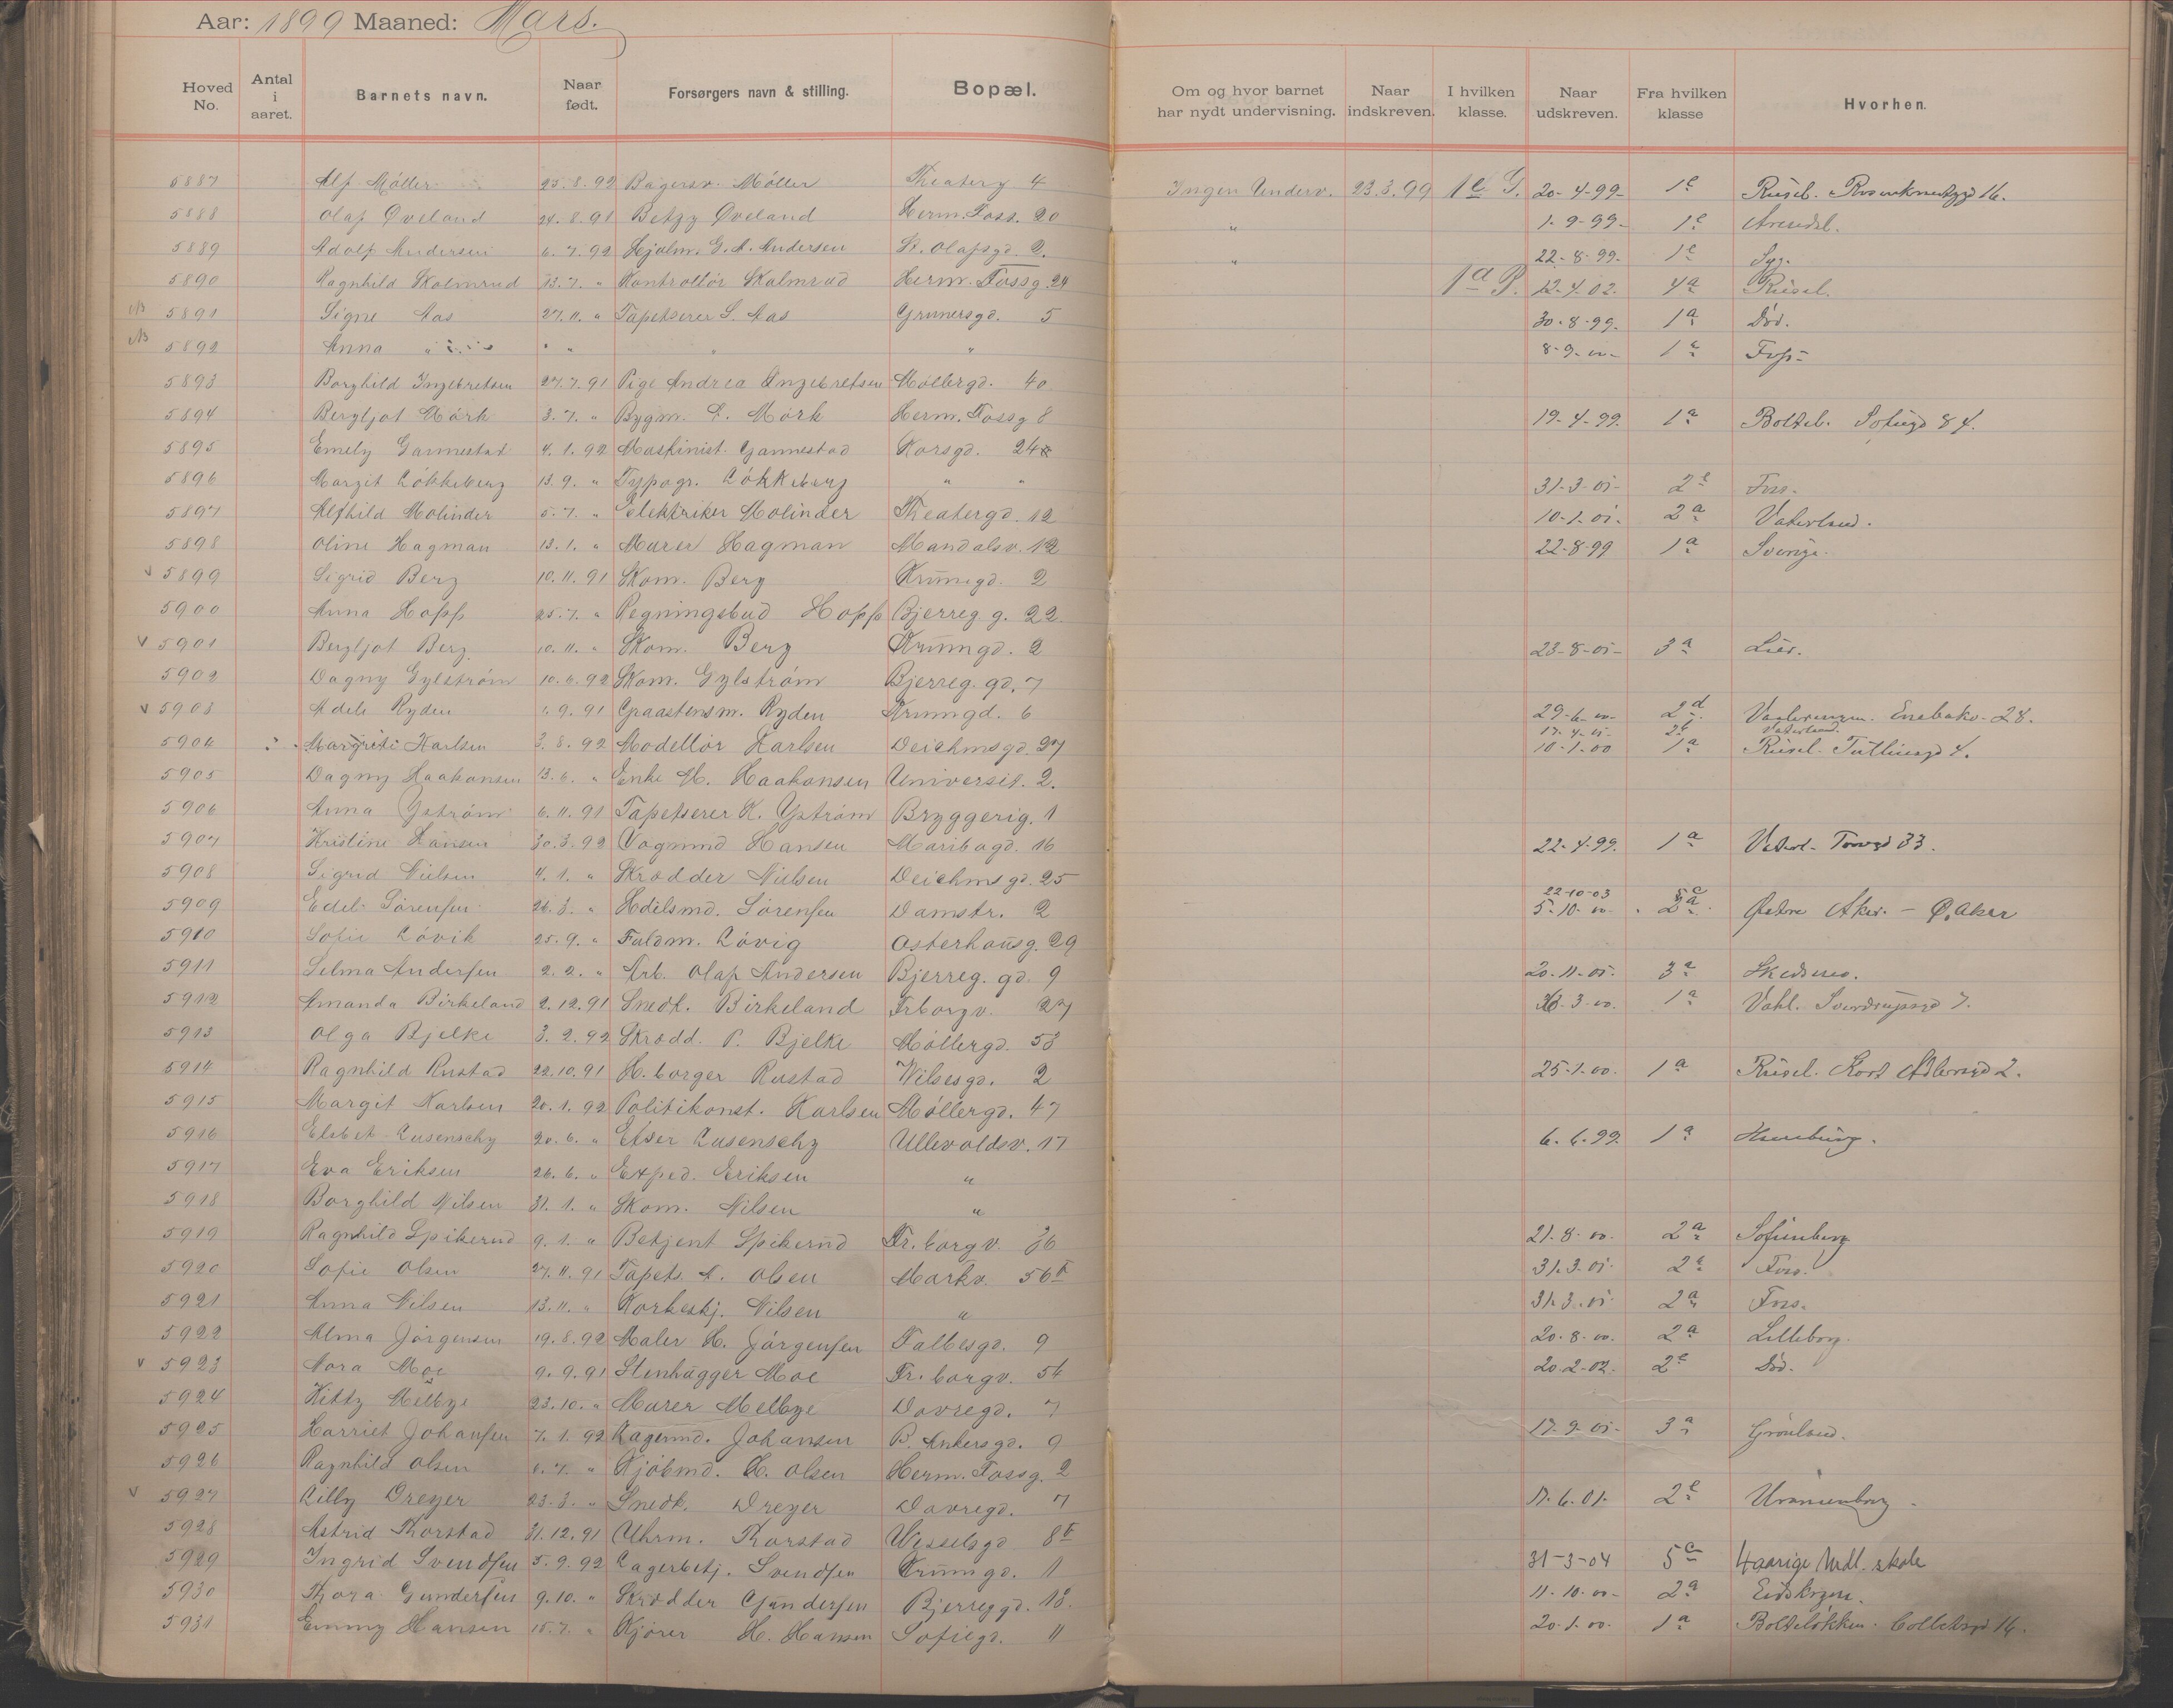 Aar: 1899 Maaned: Mars.
Hoved No. Antal i aaret. Barnets navn. Naar født. Forsørgers navn & stilling. Bopæl. Om og hvor barnet har nydt undervisning. Naar indskreven. I hvilken klasse. Naar udskreven. Fra hvilken klasse Hvorhen.
5887 Alf Møller 25.8.92 Bagersv. Møller Theaterg 4 Ingen Underv. 23.3.99 1e G. 20-4-99- 1e Rusel. 16.
5888 Olaf Øveland 24.8.91 Betzy Øveland Herm. Foss. 20 " 1-9-99- 1e Arendal.
5889 Adolf Andersen 6.7.92 Hjalm. G. A. Andersen St. Olafsgd. 2. " 22-8-99- 1e Syg.
5890 Ragnhild Skalmrud 13.7. " Kontrollør Skalmrud Herm. Fossg. 24 1a P. 12-4-02. 4a Rusel.
NB 5891 Signe Aas 27.11. " Tapetserer S. Aas Grunersgd. 5 30-8-99- 1a Død.
NB 5892 Anna " " " " " 8-9-00- 1a Foss-
5893 Borghild Ingebretsen 27.7.91 Pige Andrea Ingebretsen Møllergd. 40
5894 Bergljot Mørk 3.7. " Bygm. E. Mørk Herm. Fossg 8 19-4-99. 1a Boltel. Sofiegd 84.
5895 Emely Gannestad 4.1.92 Maskinist Gannestad Korsgd. 24
5896 Margit Løkkeberg 13.9. " Typogr. Løkkeberg " " 31-3-01- 2e Foss.
5897 Alfhild Molinder 5.7. " Elektriker Molinder Theatergd. 12 10-1-01- 2a Vaterland.
5898 Oline Hagman 13.1. " Murer Hagman Mandalsv. 12 22-8-99 1a Sverige.
v 5899 Sigrid Berg 10.11.91 Skom. Berg Krumgd. 2
5900 Anna Hopp 25.7. " Regningsbud Hopp Bjerreg g. 22
v 5901 Bergljot Berg 10.11. " Skom. Berg Krumgd. 2 23-8-01- 3a Lier.
5902 Dagny Gylstrøm 10.6.92 Skom. Gylstrøm Bjerreg. gd. 7
v 5903 Adele Ryden 1.9.91 Graastensm. Ryden Krumgd. 6 29-6-00- 2d Enebakv. 28.
17-4-01- Vaterland.
5904 Margrete Karlsen 3.8.92 Modellør Karlsen Deichmsgd. 27 10-1-00 1a Rusel. Tullinsgd 4.
5905 Dagny Haakonsen 13.6. " Enke M. Haakonsen Universit. 2.
5906 Anna Ystrøm 6.11.91 Tapetserer K. Ystrøm Bryggerig. 1
5907 Kristine Hansen 30.3.92 Vognmd Hansen Maribogd. 16 22-4-99. 1a Vaterl. Torvgd 33.
5908 Sigrid Nielsen 4.1. " Skrødder Nielsen Deichms gd. 25
22-10-03 5c
5909 Edel Sørensen 26.3. " Hdelsmd. Sørensen Damstr. 2 5-10-00- 2a Østre Aker. - Ø. Aker
5910 Sofie Løvik 25.9. " Fuldm. Løvig Osterhausg. 29
5911 Selma Andersen 2.2. " Arb. Olaf Andersen Bjerreg. gd. 9 20-11-01. 3a Skedsmo.
5912 Amanda Birkeland 2.12.91 Snedk. Birkeland Frborgv. 27 3-00. 1a Vahl. Sverdrupsgd 7.
5913 Olga Bjelke 3.2.92 Skrødd. P. Bjelke Møllergd. 53
5914 Ragnhild Rustad 22.10.91 H. borger Rustad Wilsesgd. 2 25-1-00. 1a Rusel. Kort Adlersgd 2.
5915 Margit Karlsen 20.1.92 Politikonst. Karlsen Møllergd. 47
5916 Elsbet Lusenschy 20.6. " Etser Lusenschy Ullevoldsv. 17 6-6-99. 1a Hamburg.
5917 Eva Eriksen 26.6. " Exped. Eriksen "
5918 Borghild Nilsen 31.1. " Skom. Nilsen "
5919 Ragnhild Spikerud 9.1. " Betjent Spikerud Fr. borgv. 36 21-8-00. 2a Sofienberg
5920 Sofie Olsen 27.11.91 Tapets. A. Olsen Markv. 56 II 31-3-01- 2e Foss.
5921 Anna Nilsen 13.11. " Korkeskj. Nilsen " 31-3-01 2a Foss.
5922 Alma Jørgensen 19.8.92 Maler H. Jørgensen Falbesgd. 9 20-8-00. 2a Lilleborg.
v 5923 Nora Moe 9.9.91 Stenhugger Moe Fr. borgv. 54 20-2-02. 2e Død.
5924 Kitty Melbye 23.10. " Murer Melbye Dovregd. 7
5925 Harriet Johansen 7.1.92 Lagermd. Johansen B. Ankersgd. 9 17-9-01- 3a Grønland.
5926 Ragnhild Olsen 6.7. " Kjøbmd. H. Olsen Herm. Fossg. 2
v 5927 Lilly Dreyer 23.3. " Snedk. Dreyer Dovregd. 7 17-6-01. 2e Uranienborg.
5928 Astrid Thorstad 31.12.91 Uhrm. Thorstad Wesselsgd 8 II
5929 Ingrid Svendsen 5.9.92 Lagerbetj. Svendsen Krumgd. 1 31-3-04 5c 4aarige Mdl. skole
5930 Thora Gundersen 9.10. " Skrødder Gundersen Bjerreggd. 18. 11-10-00- 2a Eidskogen.
5931 Emmy Hansen 15.7. " Kjører H. Hansen Sofiegd. 11 20-1-00. 1a Bolteløkken. Collettsgd 16.